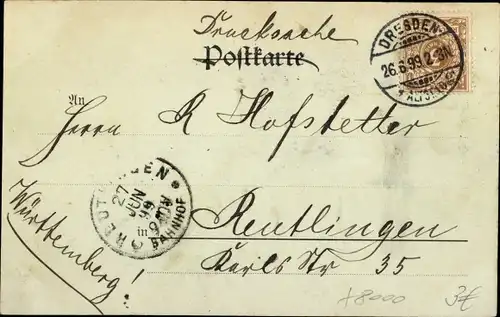 Drucksache
Postkarte
DRESDEN-
26.6.99.2-3N.
* ALTST.
An
Herrn R Hofstetter
REUTLINGEN
27
JUN
99
BAHNHOF
in Reutlingen
Karls Str 35
Württemberg!
+8000
3€